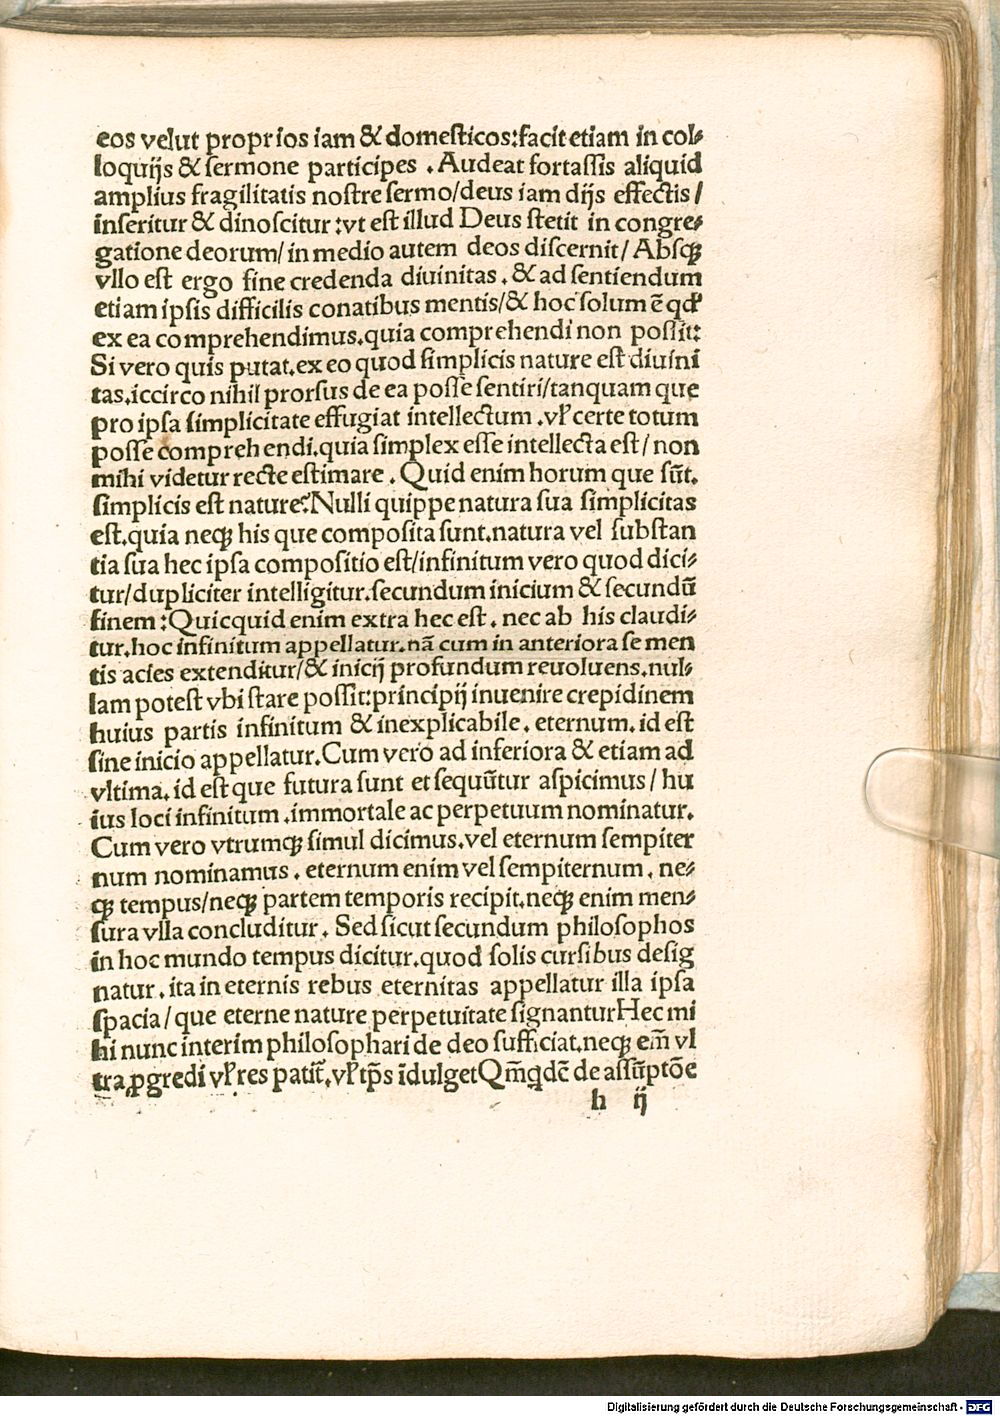 eos velut proprios iam & domesticos:facit etiam in col⸗
loquijs & sermone participes . Audeat fortassis aliquid
amplius fragilitatis nostre sermo/deus iam dijs effectis/
inseritur & dinoscitur :vt est illud Deus stetit in congre⸗
gatione deorum/ in medio autem deos discernit/ Absqꝫ
vllo est ergo fine credenda diuinitas . & ad sentiendum
etiam ipsis difficilis conatibus mentis/& hoc solum ē qd'
ex ea comprehendimus.quia comprehendi non possit:
Si vero quis putat.ex eo quod simplicis nature est diuini
tas.iccirco nihil prorsus de ea posse sentiri/tanquam que
pro ipsa simplicitate effugiat intellectum .vl' certe totum
posse comprehendi.quia simplex esse intellecta est/ non
mihi videtur recte estimare . Quid enim horum que sūt.
simplicis est nature?Nulli quippe natura sua simplicitas
est.quia neqꝫ his que composita sunt.natura vel substan
tia sua hec ipsa compositio est/infinitum vero quod dici⸗
tur/dupliciter intelligitur.secundum inicium & secundū
finem :Quicquid enim extra hec est . nec ab his claudi⸗
tur.hoc infinitum appellatur.nā cum in anteriora se men
tis acies extenditur/& inicij profundum reuoluens.nul⸗
lam potest vbi stare possit:principij inuenire crepidinem
huius partis infinitum & inexplicabile . eternum. id est
sine inicio appellatur.Cum vero ad inferiora & etiam ad
vltima. id est que futura sunt et sequūtur aspicimus/ hu
ius loci infinitum .immortale ac perpetuum nominatur.
Cum vero vtrumqꝫ simul dicimus.vel eternum sempiter
num nominamus . eternum enim vel sempiternum . ne⸗
qꝫ tempus/neqꝫ partem temporis recipit.neqꝫ enim men⸗
sura vlla concluditur . Sed sicut secundum philosophos
in hoc mundo tempus dicitur.quod solis cursibus desig
natur . ita in eternis rebus eternitas appellatur illa ipsa
spacia/ que eterne nature perpetuitate signanturHec mi
hi nunc interim philosophari de deo sufficiat.neqꝫ em̄ vl
tra ꝓgredi vl' res patit̄.vl' tp̄s īdulgetQm̄qdē de assūptōe
h ij
Digitalisierung gefördert durch die Deutsche Forschungsgemeinschaft - DFG